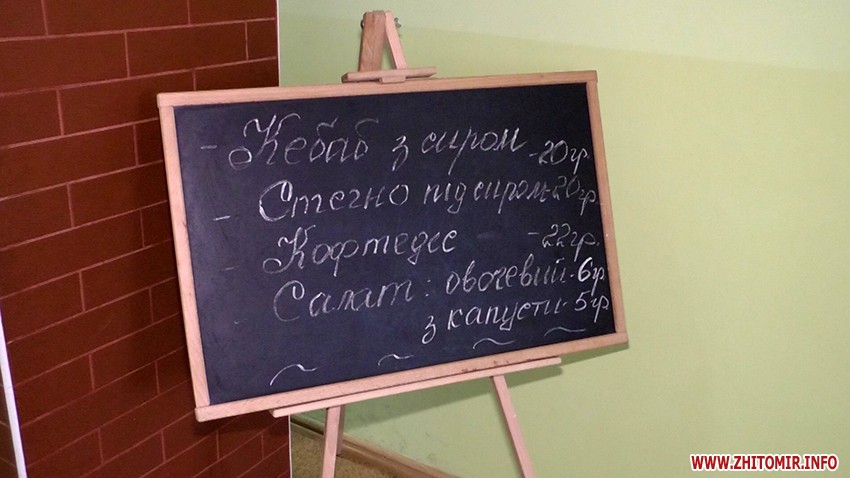 - Кебаб з сиром - 20 гр.
- Стегно під сиром - 20 гр.
- Кофтедес - 22 гр.
- Салат: овочевий - 6 гр
з капусти - 5 гр
WWW.ZHITOMIR.INFO